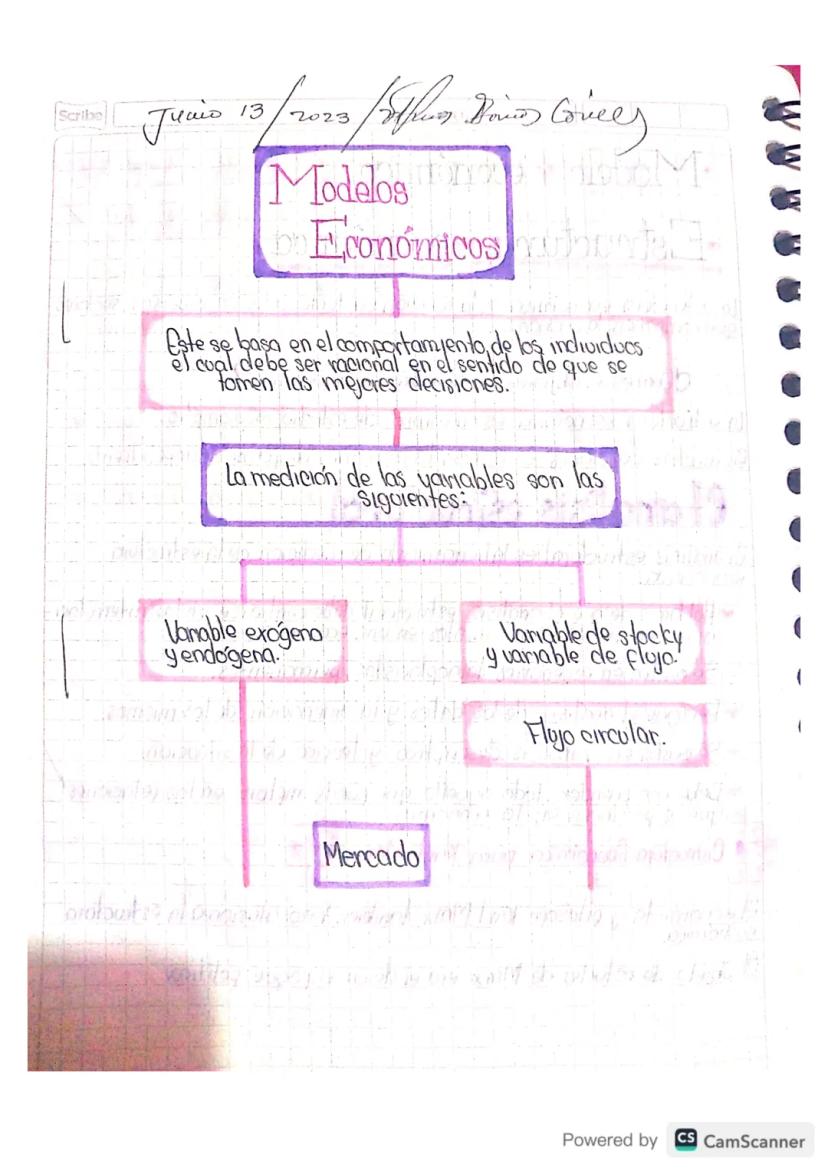 Scribe
Junio 13/2023/
Modelos
Económicos
Este se basa en el comportamiento, de los individuos
el cual debe ser racional en el sentido de que se
tomen las mejores decisiones.
La medición de las variables son las
siguientes:
Variable exógeno
y endógena.
Variable de stock y
y variable de flujo.
Flujo circular.
Mercado
Powered by CS CamScanner